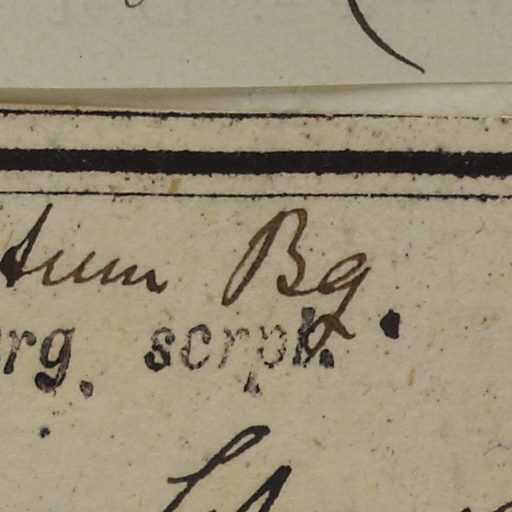 tum Bg.
rg. scrpt.